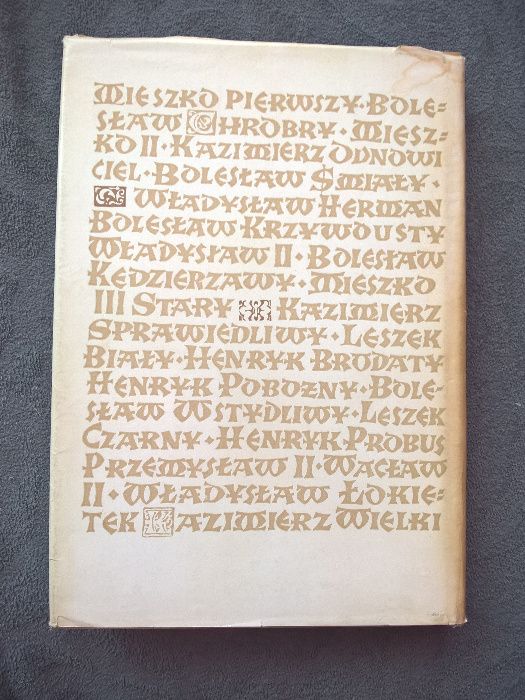 MIESZKO PIERWSZY·BOLE=
SŁAW CHROBRY·MIESZ-
KO II·KAZIMIERZ ODNOWI
CIEL·BOLESŁAW ŚMIAŁY·
WŁADYSŁAW HERMAN
BOLESŁAW KRZYWOUSTY
WŁADYSŁAW II·BOLESŁAW
KĘDZIERZAWY·MIESZKO
III STARY KAZIMIERZ
SPRAWIEDLIWY·LESZEK
BIAŁY·HENRYK BRODATY
HENRYK POBOŻNY·BOLE-
SŁAW WSTYDLIWY·LESZEK
CZARNY·HENRYK PROBUS
PRZEMYSŁAW II·WACŁAW
II·WŁADYSŁAW ŁOKIE-
TEK KAZIMIERZ WIELKI